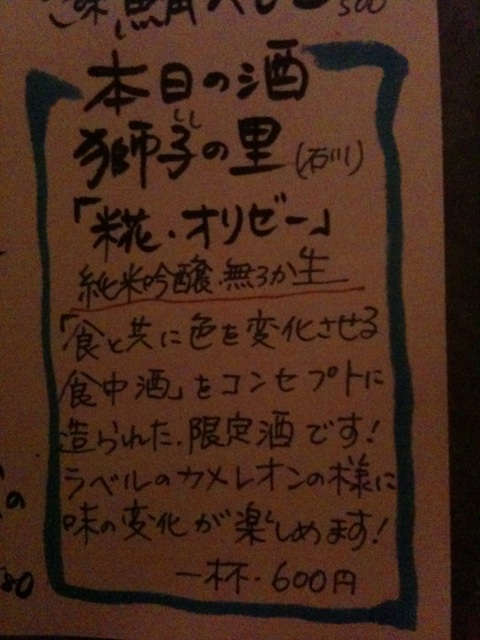 500
本日の酒
獅子の里(石川)
しし
「糀・オリゼー」
純米吟醸 無ろか生
「食と共に色を変化させる
食中酒」をコンセプトに
造られた、限定酒です!
ラベルのカメレオンの様に
味の変化が楽しめます!
一杯・600円
の